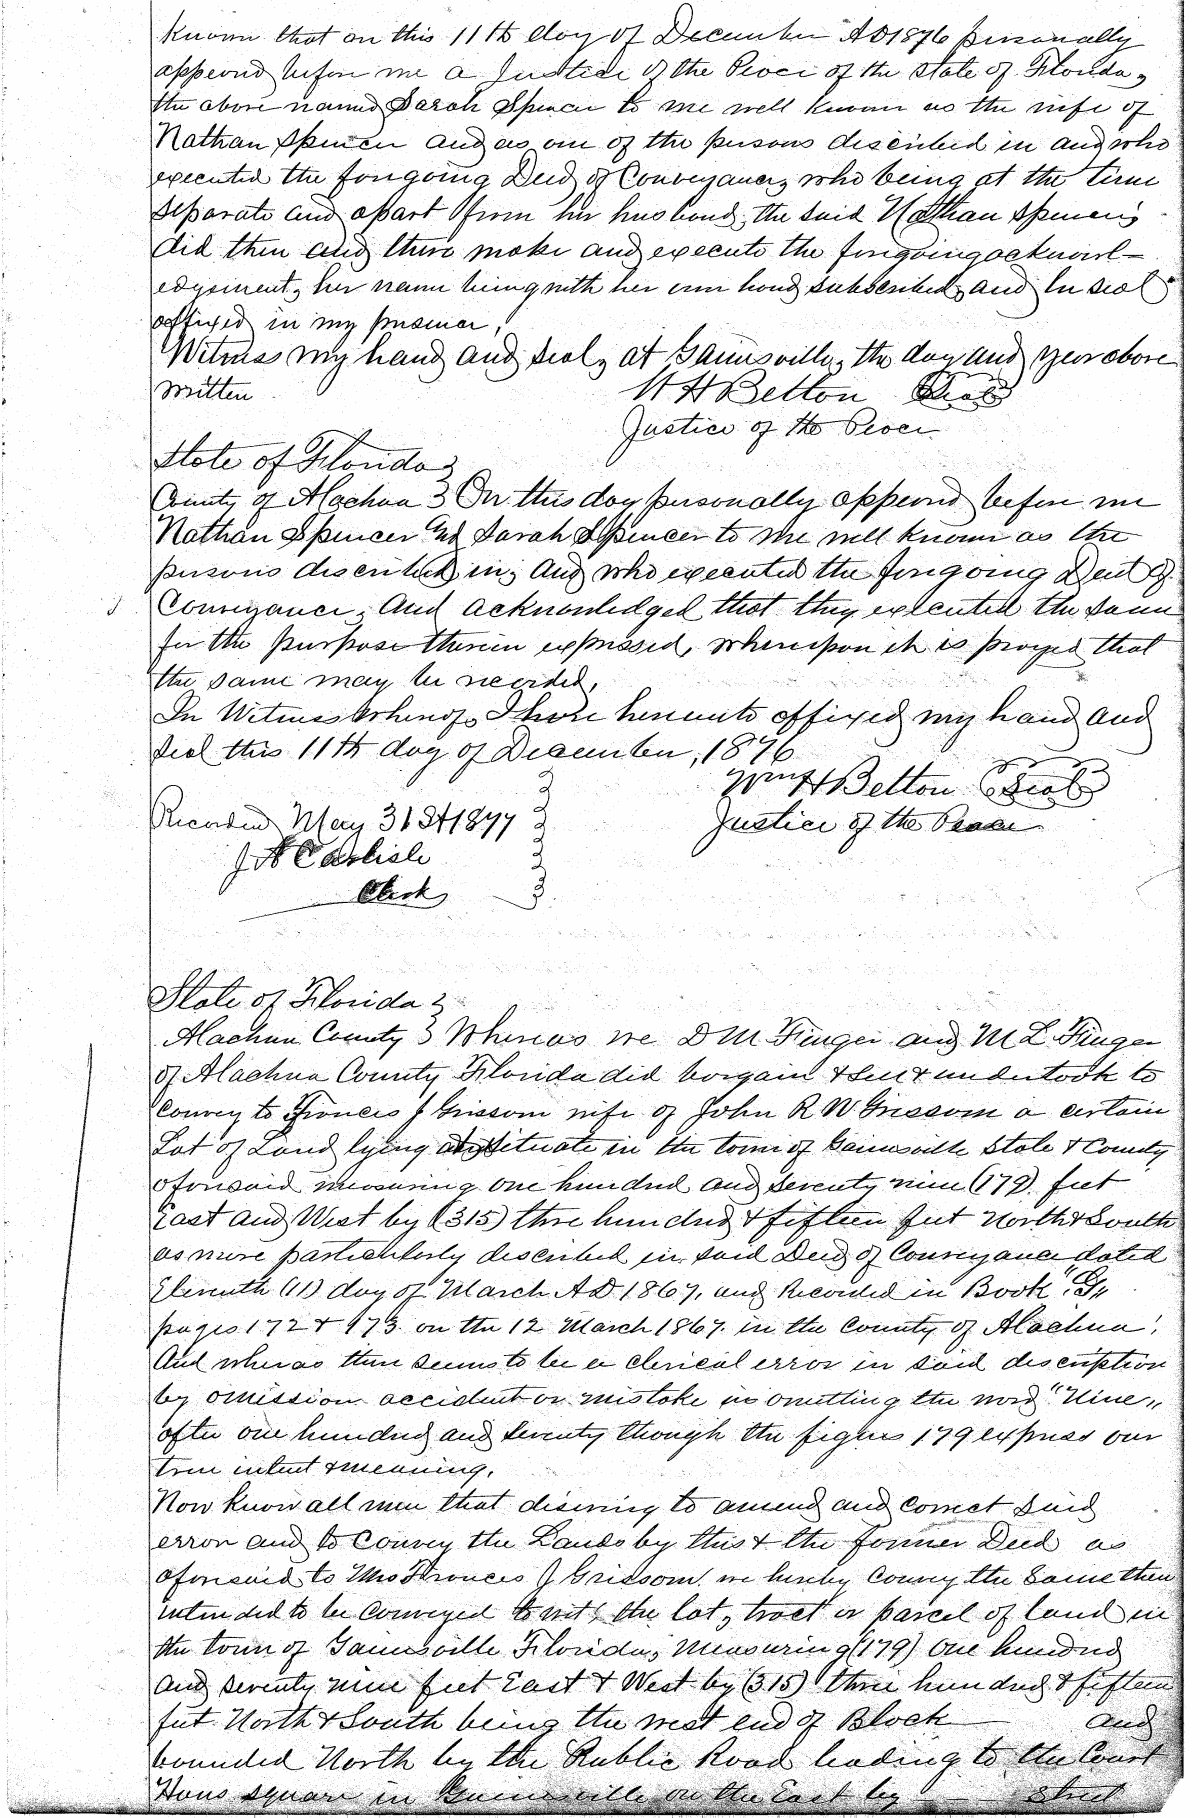 Known that on this 11th day of December AD1876 personally
appeared before me a Justice of the Peace of the State of Florida,
the above named Sarah Spencer to me well known as the wife of
Nathan Spencer and as one of the persons described in and who
executed the foregoing Deed of Conveyance, who being at the time
separate and apart from her husband, the said Nathan Spencer,
did then and there make and execute the foregoing acknowl-
edgement, her name being with her own hand subscribed, and her seal
affixed in my presence,
Witness my hand and seal, at Gainesville, the day and year above
written W H Belton Seal
Justice of the Peace
State of Florida }
County of Alachua } On this day personally appeared before me
Nathan Spencer and Sarah Spencer to me well known as the
persons described in, and who executed the foregoing Deed of
Conveyance, And acknowledged that they executed the same
for the purpose therein expressed, whereupon it is prayed that
the same may be recorded,
In Witness Whereof, I have hereunto affixed my hand and
seal this 11th day of December, 1876
Wm H Belton Seal
Recorded May 31st 1877 Justice of the Peace
J A Carlisle
Clerk
State of Florida }
Alachua County } Whereas we D M Finger and M L Finger
of Alachua County Florida did bargain & sell & undertook to
convey to Frances J Grissom wife of John R W Grissom a certain
Lot of Land lying and situate in the town of Gainesville State & County
aforesaid measuring one hundred and seventy nine (179) feet
East and West by (315) three hundred & fifteen feet North & South
as more particularly described in said Deed of Conveyance dated
Eleventh (11) day of March AD 1867, and Recorded in Book "G"
pages 172 & 173 on the 12 March 1867 in the County of Alachua,
And whereas there seems to be a clerical error in said description
by omission accident or mistake in omitting the word "Nine"
after one hundred and seventy though the figures 179 express our
true intent & meaning,
Now know all men that desiring to amend and correct said
error and to convey the Lands by this & the former Deed as
aforesaid to Mrs Frances J Grissom, we hereby convey the same then
intended to be conveyed to wit, the lot, tract or parcel of land in
the town of Gainesville Florida, measuring (179) one hundred
and seventy nine feet East & West by (315) three hundred & fifteen
feet North & South being the west end of Block and
bounded North by the Public Road leading to the Court
House square in Gainesville on the East by Street